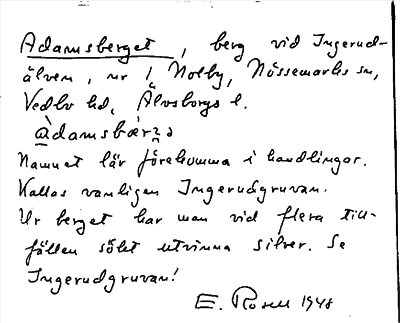 Adamsberget, berg vid Ingerud-
älven, nr 1 Nolby, Nössemarks sn,
Vedbo hd, Älvsborgs l.
àdamsbærʒə
Namnet lär förekomma i handlingar.
Kallas vanligen Ingerudgruvan.
Ur berget har man vid flera till-
fällen sökt utvinna silver. Se
Ingerudgruvan!
E. Rosell 1948